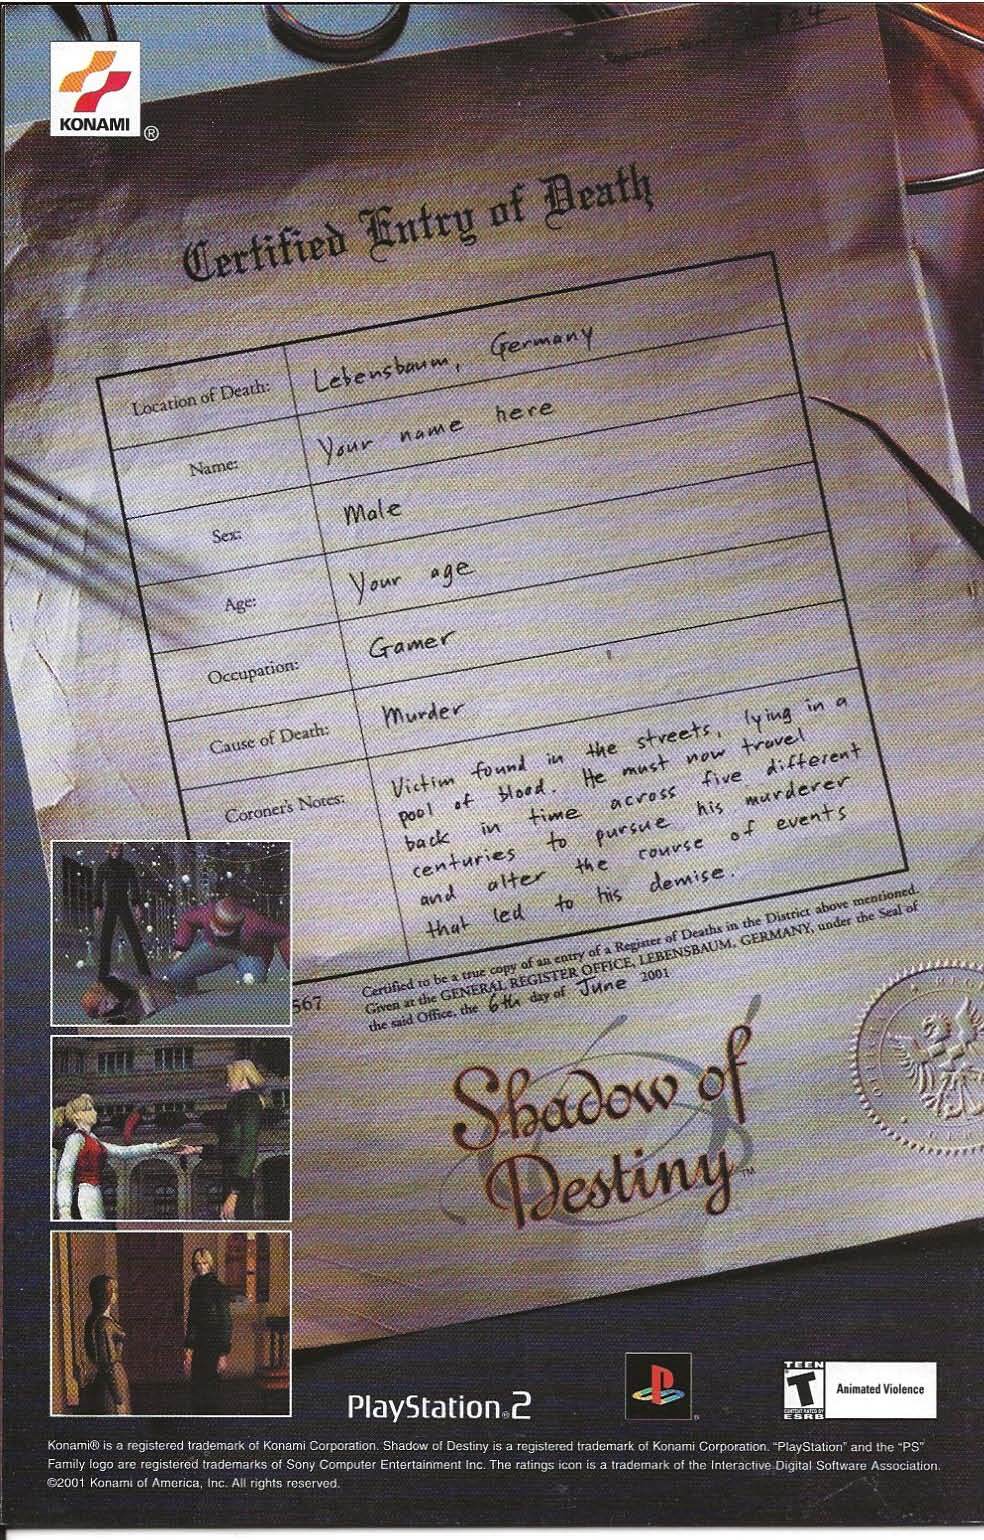 KONAMI
®
Certified Entry of Death
Location of Death: Lebensbaum, Germany
Name: Your name here
Sex: Male
Age: Your age
Occupation: Gamer
Cause of Death: Murder
Coroner's Notes: Victim found in the streets, lying in a
pool of blood. He must now travel
back in time across five different
centuries to pursue his murderer
and alter the course of events
that led to his demise.
567
Certified to be a true copy of an entry of a Register of Deaths in the District above mentioned.
Given at the GENERAL REGISTER OFFICE, LEBENSBAUM, GERMANY, under the Seal of
the said Office, the 6th day of June 2001
Shadow of
Destiny™
PlayStation®2
TEEN
T
CONTENT RATED BY
ESRB
Animated Violence
Konami® is a registered trademark of Konami Corporation. Shadow of Destiny is a registered trademark of Konami Corporation. "PlayStation" and the "PS"
Family logo are registered trademarks of Sony Computer Entertainment Inc. The ratings icon is a trademark of the Interactive Digital Software Association.
©2001 Konami of America, Inc. All rights reserved.